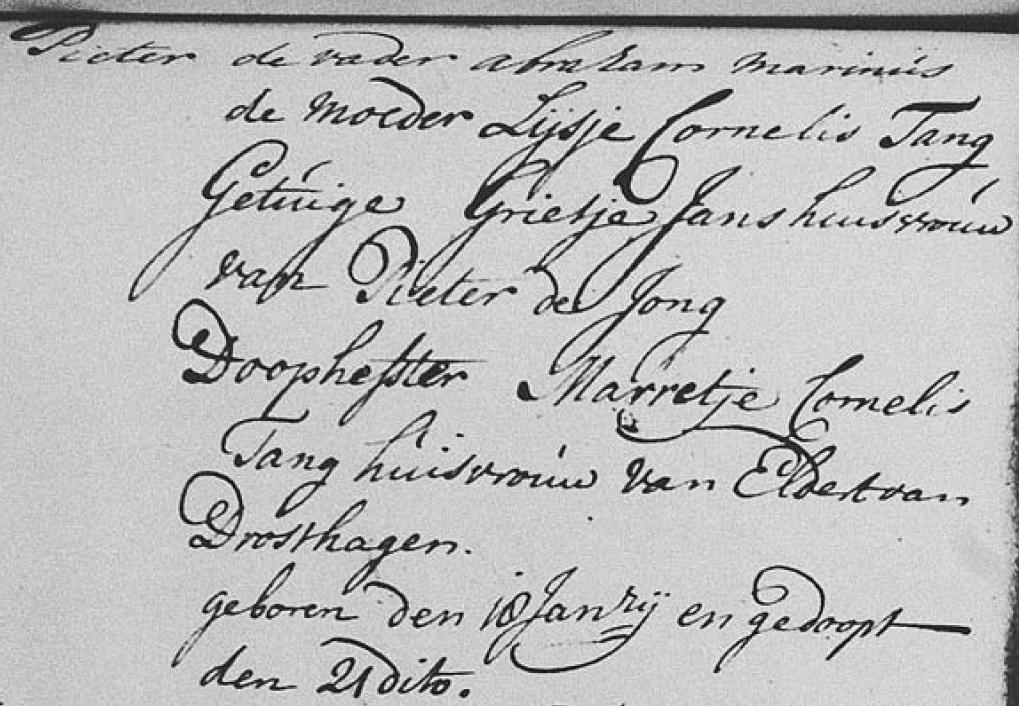 Pieter de vader abraham marinús
de moeder Lijsje Cornelis Tang
Getúige Grietje Jans huisvroúw
van Pieter de Jong
Doophefster Marretje Cornelis
Tang huisvroúw van Eldert van
Drosthagen.
geboren den 18 Janrij en gedoopt
den 21 dito.